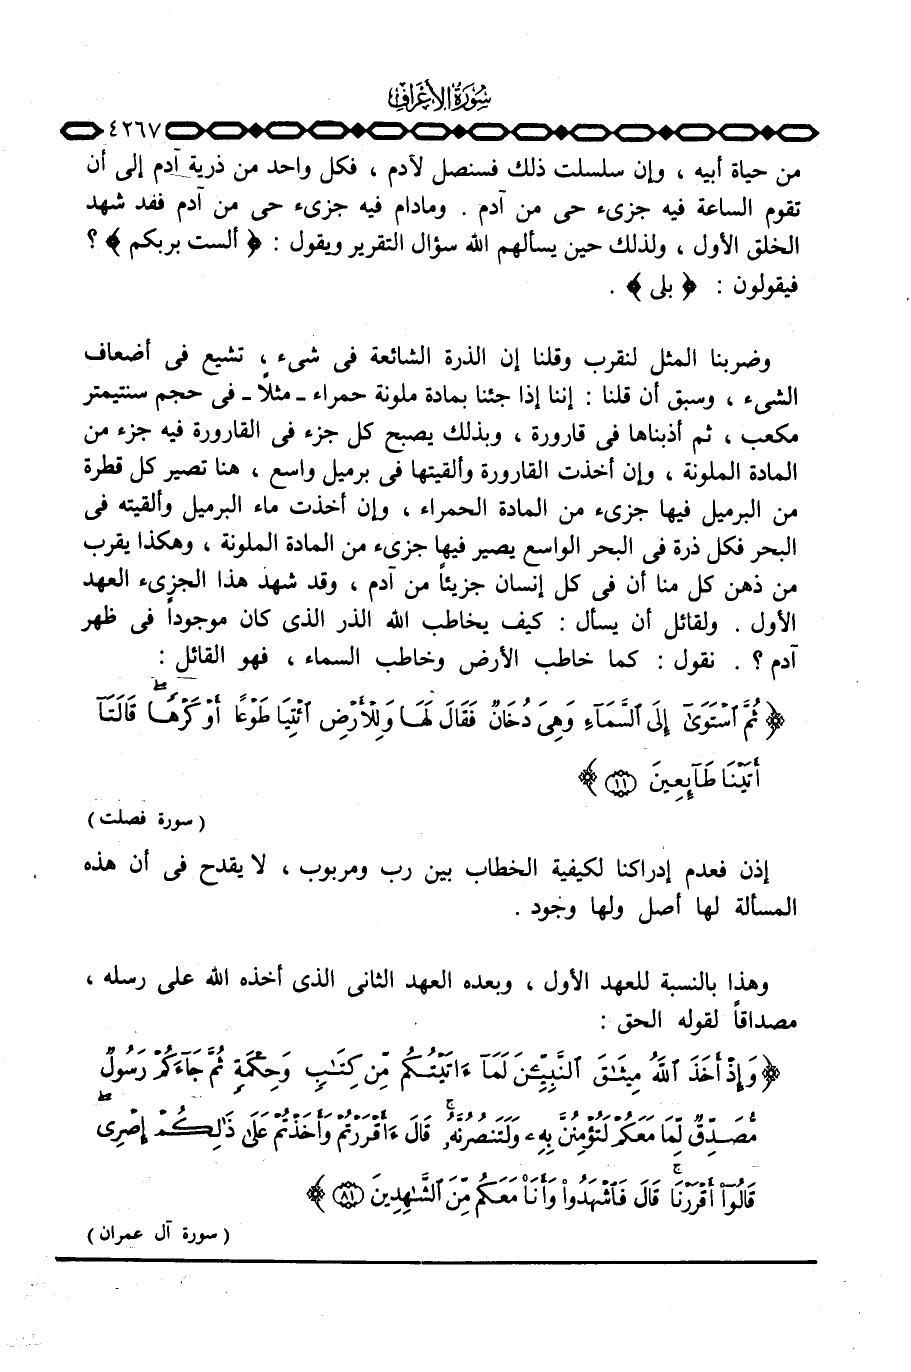 سُورَةُ الأَعْرَافِ
٤٢٦٧
من حياة أبيه ، وإن سلسلت ذلك فستصل لآدم ، فكل واحد من ذرية آدم إلى أن
تقوم الساعة فيه جزىء حى من آدم . ومادام فيه جزىء حى من آدم فقد شهد
الخلق الأول ، ولذلك حين يسألهم الله سؤال التقرير ويقول : ﴿ ألست بربكم ﴾ ؟
فيقولون : ﴿ بلى ﴾ .
وضربنا المثل لنقرب وقلنا إن الذرة الشائعة فى شىء ، تشيع فى أضعاف
الشىء ، وسبق أن قلنا : إننا إذا جئنا بمادة ملونة حمراء ـ مثلاً ـ فى حجم سنتيمتر
مكعب ، ثم أذبناها فى قارورة ، وبذلك يصبح كل جزء فى القارورة فيه جزء من
المادة الملونة ، وإن أخذت القارورة وألقيتها فى برميل واسع ، هنا تصير كل قطرة
من البرميل فيها جزىء من المادة الحمراء ، وإن أخذت ماء البرميل وألقيته فى
البحر فكل ذرة فى البحر الواسع يصير فيها جزىء من المادة الملونة ، وهكذا يقرب
من ذهن كل منا أن فى كل إنسان جزيئاً من آدم ، وقد شهد هذا الجزىء العهد
الأول . ولقائل أن يسأل : كيف يخاطب الله الذر الذى كان موجوداً فى ظهر
آدم ؟ . نقول : كما خاطب الأرض وخاطب السماء ، فهو القائل :
﴿ ثُمَّ ٱسْتَوَىٰٓ إِلَى ٱلسَّمَآءِ وَهِىَ دُخَانٌ فَقَالَ لَهَا وَلِلْأَرْضِ ٱئْتِيَا طَوْعًا أَوْ كَرْهًا ۖ قَالَتَآ
أَتَيْنَا طَآئِعِينَ ﴿١١﴾ ﴾
( سورة فصلت )
إذن فعدم إدراكنا لكيفية الخطاب بين رب ومربوب ، لا يقدح فى أن هذه
المسألة لها أصل ولها وجود .
وهذا بالنسبة للعهد الأول ، وبعده العهد الثانى الذى أخذه الله على رسله ،
مصداقاً لقوله الحق :
﴿ وَإِذْ أَخَذَ ٱللَّهُ مِيثَٰقَ ٱلنَّبِيِّـۧنَ لَمَآ ءَاتَيْتُكُم مِّن كِتَٰبٍ وَحِكْمَةٍ ثُمَّ جَآءَكُمْ رَسُولٌ
مُّصَدِّقٌ لِّمَا مَعَكُمْ لَتُؤْمِنُنَّ بِهِۦ وَلَتَنصُرُنَّهُۥ ۚ قَالَ ءَأَقْرَرْتُمْ وَأَخَذْتُمْ عَلَىٰ ذَٰلِكُمْ إِصْرِى ۖ
قَالُوٓا۟ أَقْرَرْنَا ۚ قَالَ فَٱشْهَدُوا۟ وَأَنَا۠ مَعَكُم مِّنَ ٱلشَّٰهِدِينَ ﴿٨١﴾ ﴾
( سورة آل عمران )